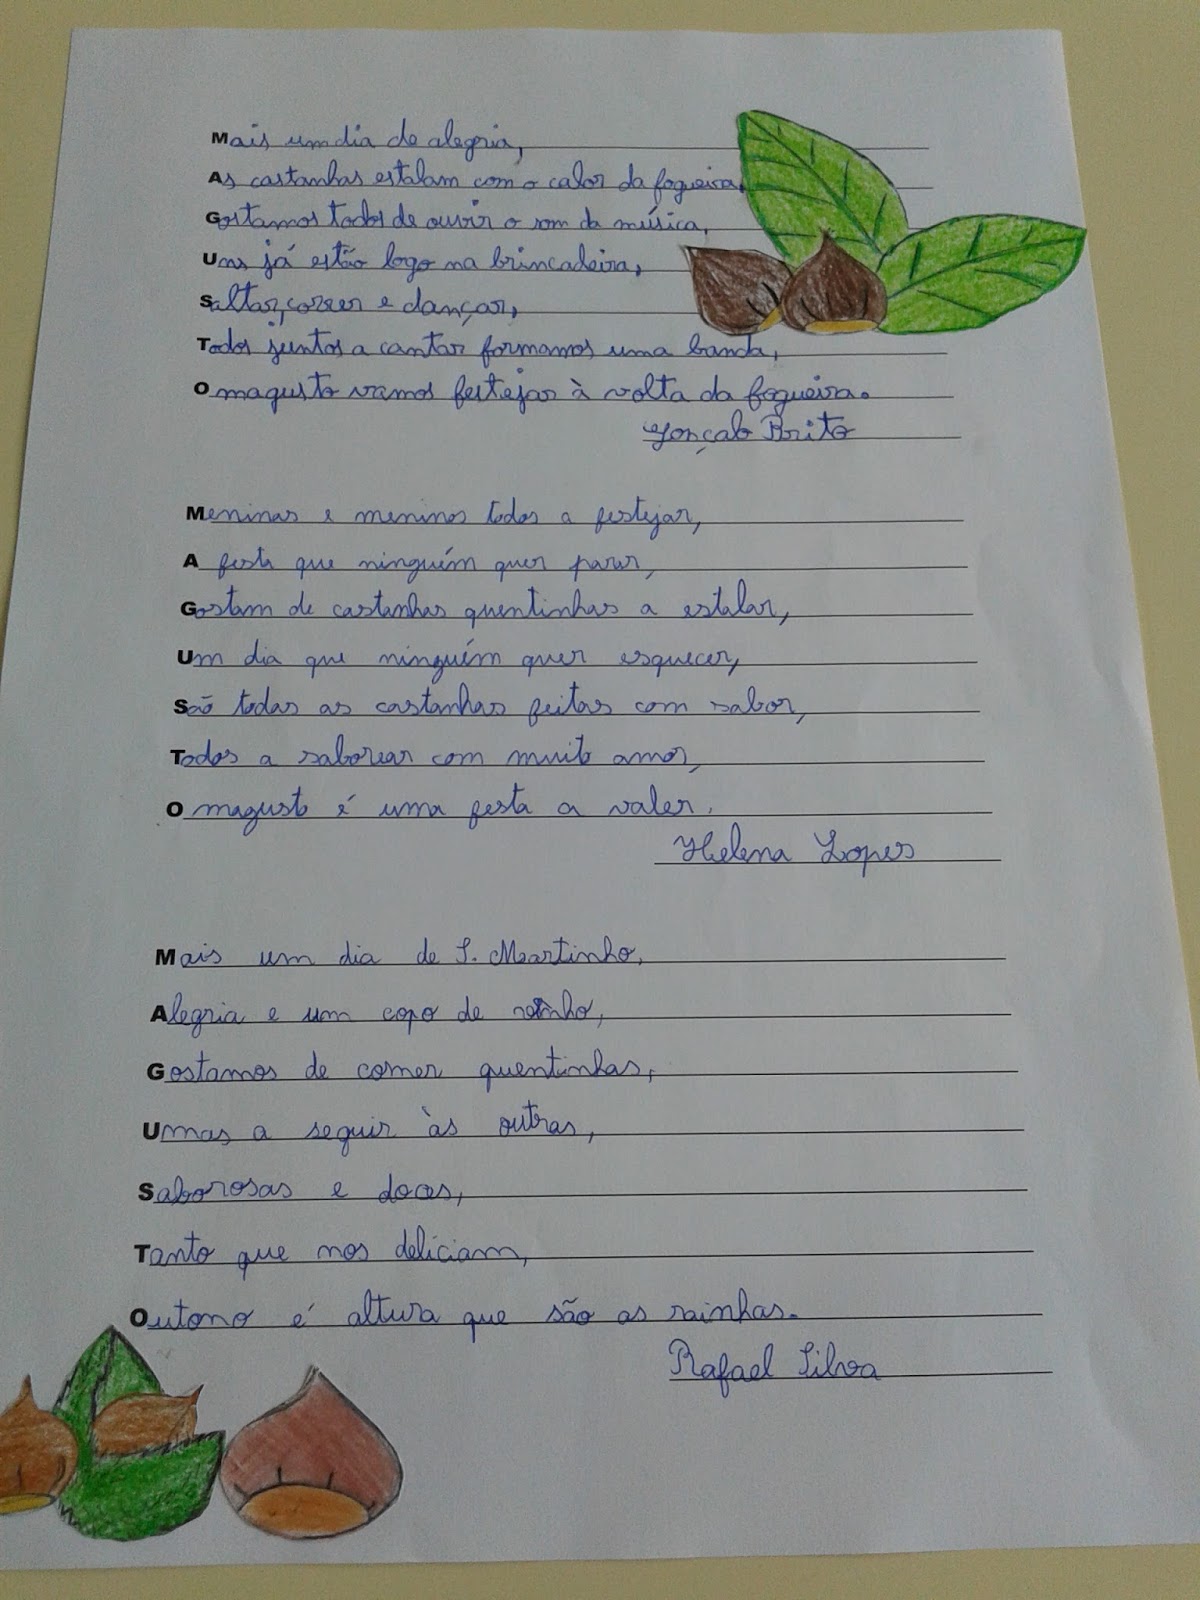 Mais um dia de alegria,
As castanhas estalam com o calor da fogueira,
Gostamos todos de ouvir o som da música,
Uns já estão logo na brincadeira,
Saltar, correr e dançar,
Todos juntos a cantar formamos uma banda,
O magusto vamos festejar à volta da fogueira.
Gonçalo Brito
Meninas e meninos todos a festejar,
A festa que ninguém quer parar,
Gostam de castanhas quentinhas a estalar,
Um dia que ninguém quer esquecer,
São todas as castanhas feitas com sabor,
Todos a saborear com muito amor,
O magusto é uma festa a valer.
Helena Lopes
Mais um dia de S. Martinho,
Alegria e um copo de vinho,
Gostamos de comer quentinhas,
Umas a seguir às outras,
Saborosas e doces,
Tanto que nos deliciam,
Outono é altura que são as rainhas.
Rafael Silva